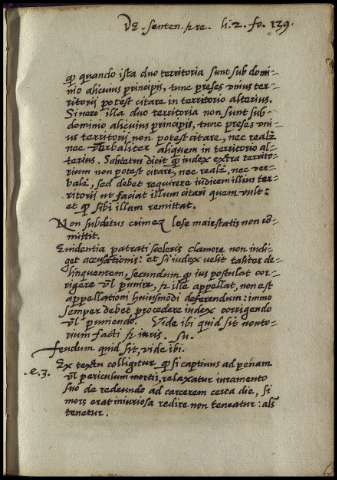 De senten. & re li. 2. fo. 129.
qp quando ista duo territoria sunt sub domi-
nio alicuius principis, tunc preses vnius ter-
ritorij potest citare in territorio alterius.
Si vero illa duo territoria non sunt sub
dominio alicuius principis, tunc preses vni-
us territorij non potest citare, nec realr
nec verbaliter aliquem in territorio al-
terius. dicit qp iudex extra territo-
rium non potest citare, nec realr, nec ver-
balr, sed debet requirere iudicem illius ter-
ritorij vt faciat illum citari quem vult:
et qp sibi illum remittat.
Non subditus crimen lese maiestatis non co-
mittit.
Euidentia patrati sceleris clamore non indi-
get accusationis: et si iudex velit tales de-
linquentem, secundum qp ius postulat cor-
rigere vl punire, & ille appellat, non est
appellationi huiusmodi deferendum: immo
semper debet procedere iudex corrigendo
vl puniendo. Vide ibi quid sit noto-
rium facti & iuris. su.
feudum quid sit, vide ibi.
e.3. Ex textu colligitur qp si captiuus ad penam
vl periculum mortis, relaxatur iuramento
suo de redeundo ad carcerem certa die, si
mors erat iniuriosa redire non teneatur: als
tenetur.